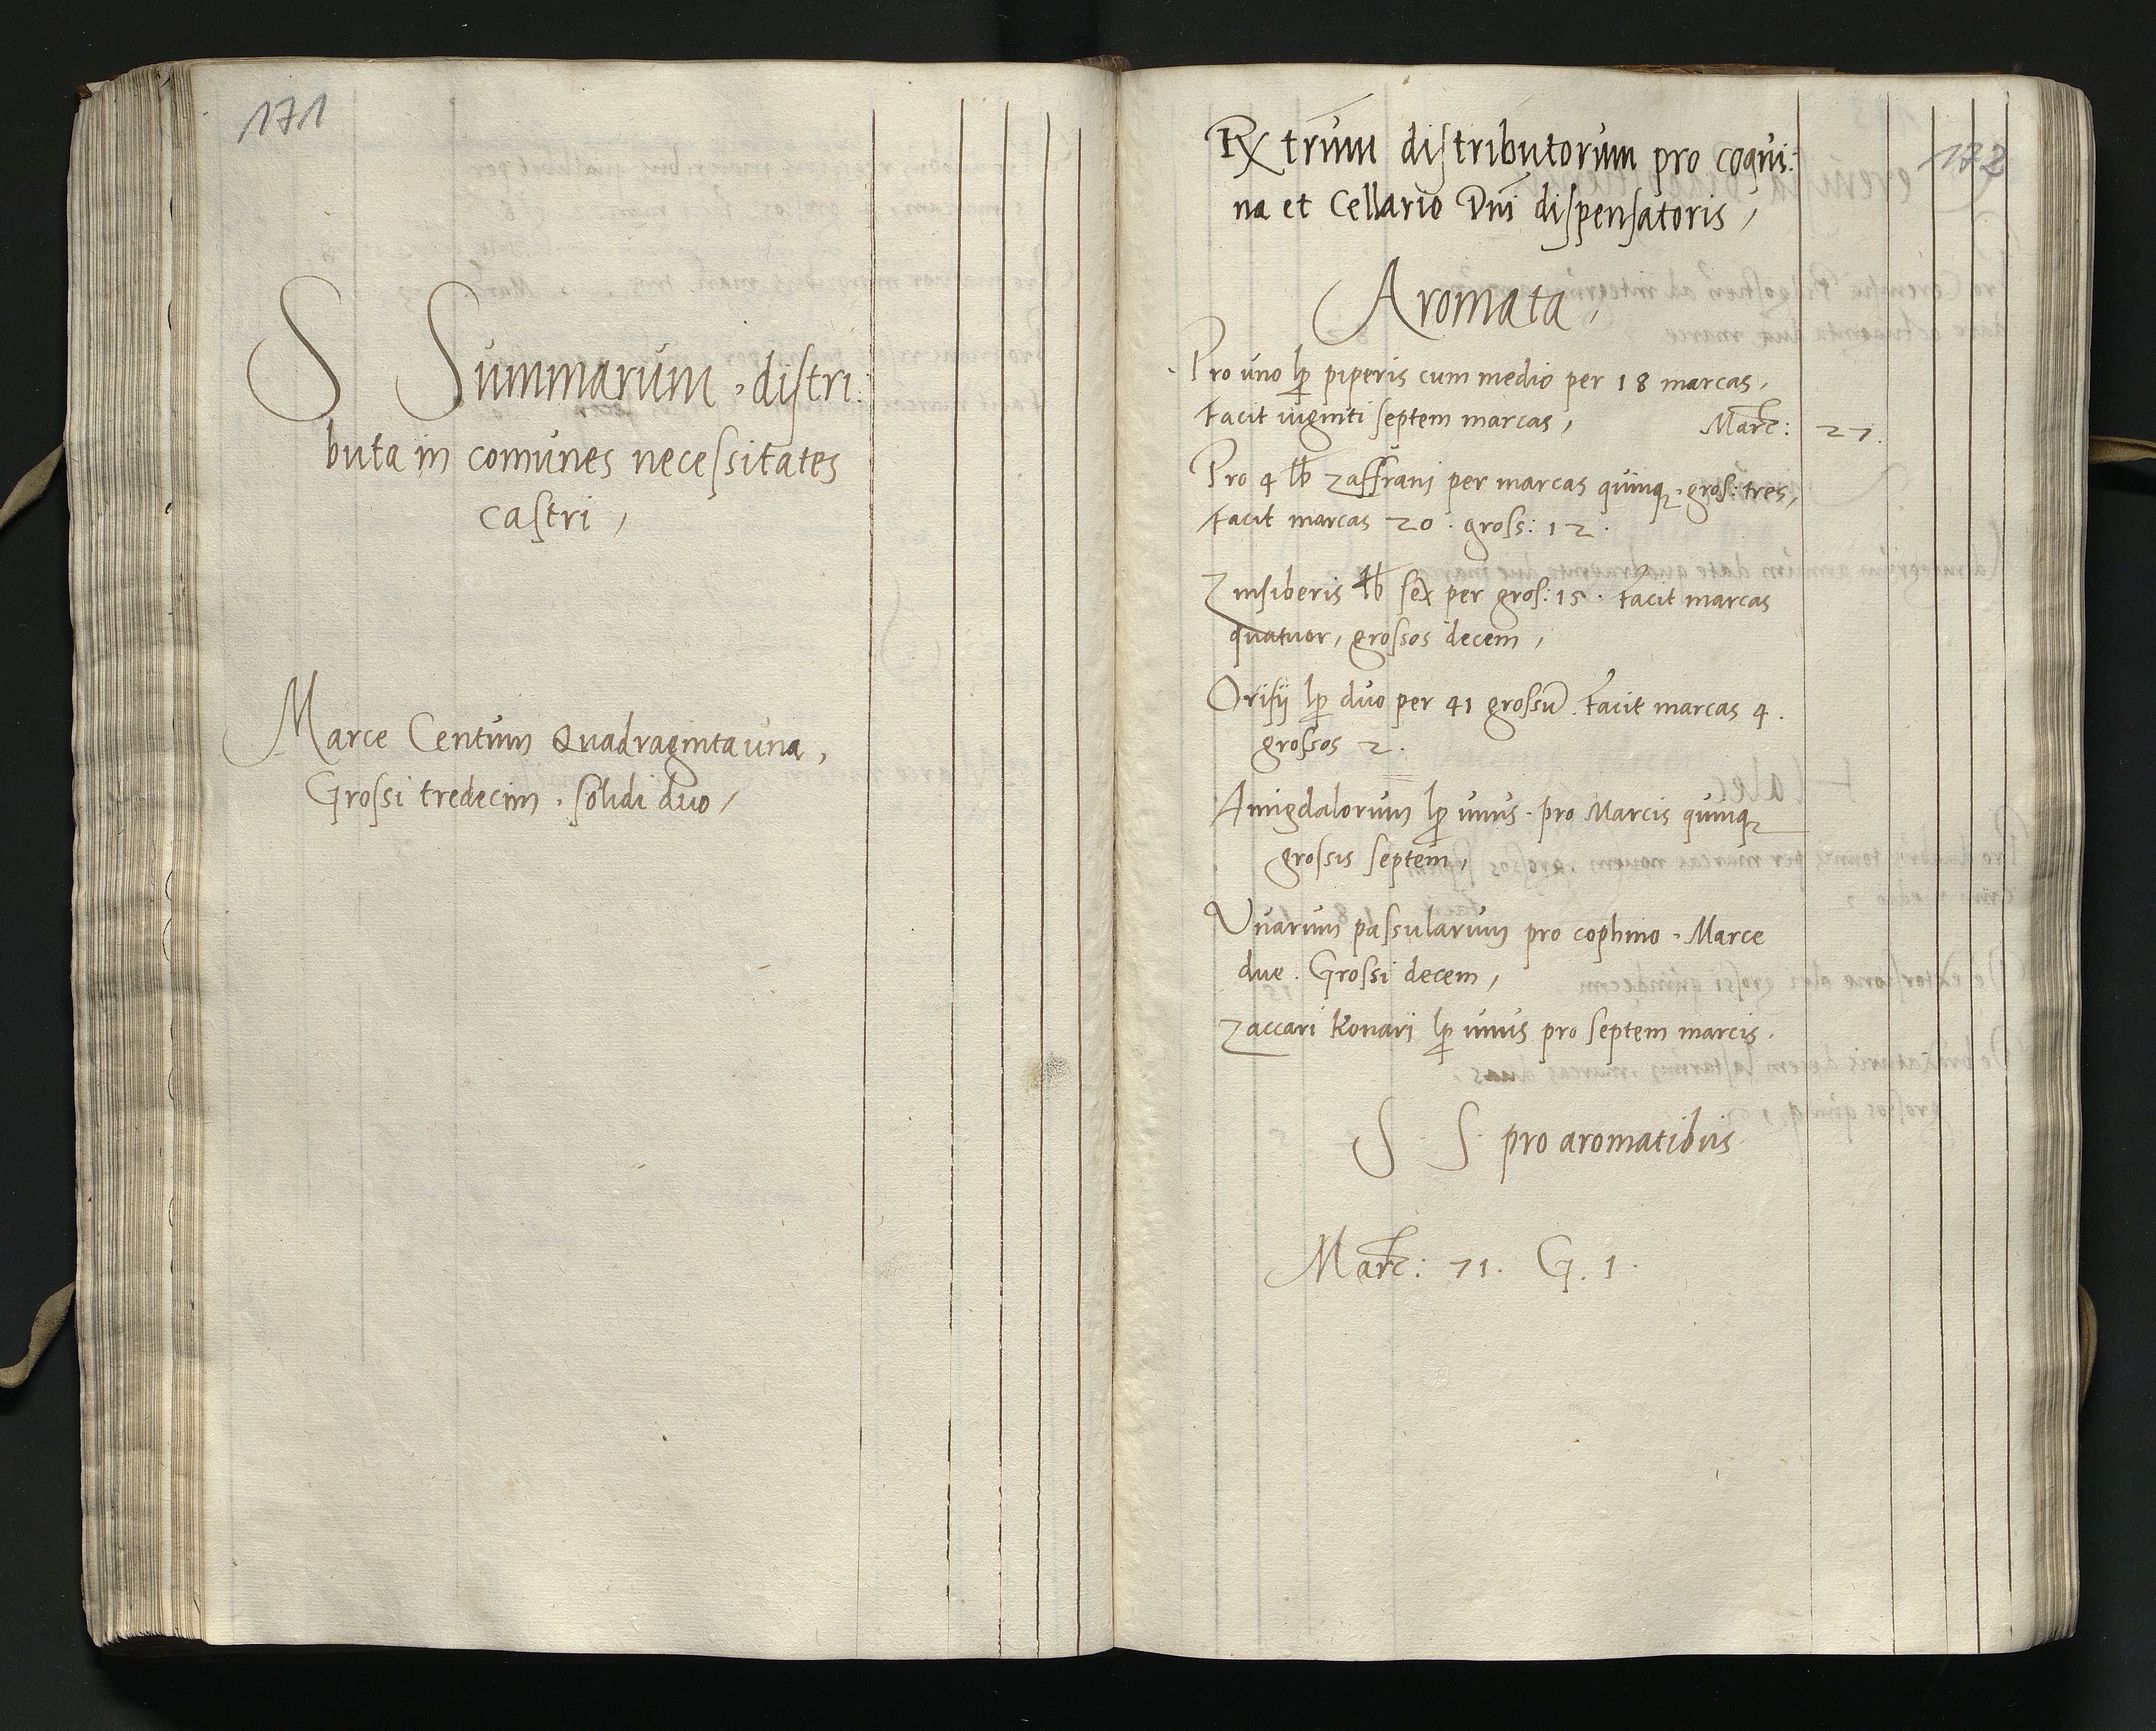 171
S Summarum, distri:
buta in comunes necessitates
castri,
Marce Centum Quadraginta una,
Grossi tredecim. solidi duo,
172
Rx trum distributorum pro coqui:
na et Cellario Dni dispensatoris,
Aromata,
Pro uno lp piperis cum medio per 18 marcas,
facit viginti septem marcas, Marc: 27.
Pro 4 lb zaffrani per marcas quinq, gros: tres,
facit marcas 20. gross: 12.
Zinsiberis lb sex per gros: 15. facit marcas
quatuor, grossos decem,
Orisij lp duo per 41 grossu. facit marcas 4.
grossos 2.
Amigdalorum lp unus. pro Marcis quinq
grossis septem,
Vuarum passularum pro cophino. Marce
due. Grossi decem,
Zaccari Konari lp unus pro septem marcis.
S. S. pro aromatibus
Marc: 71. G. 1.